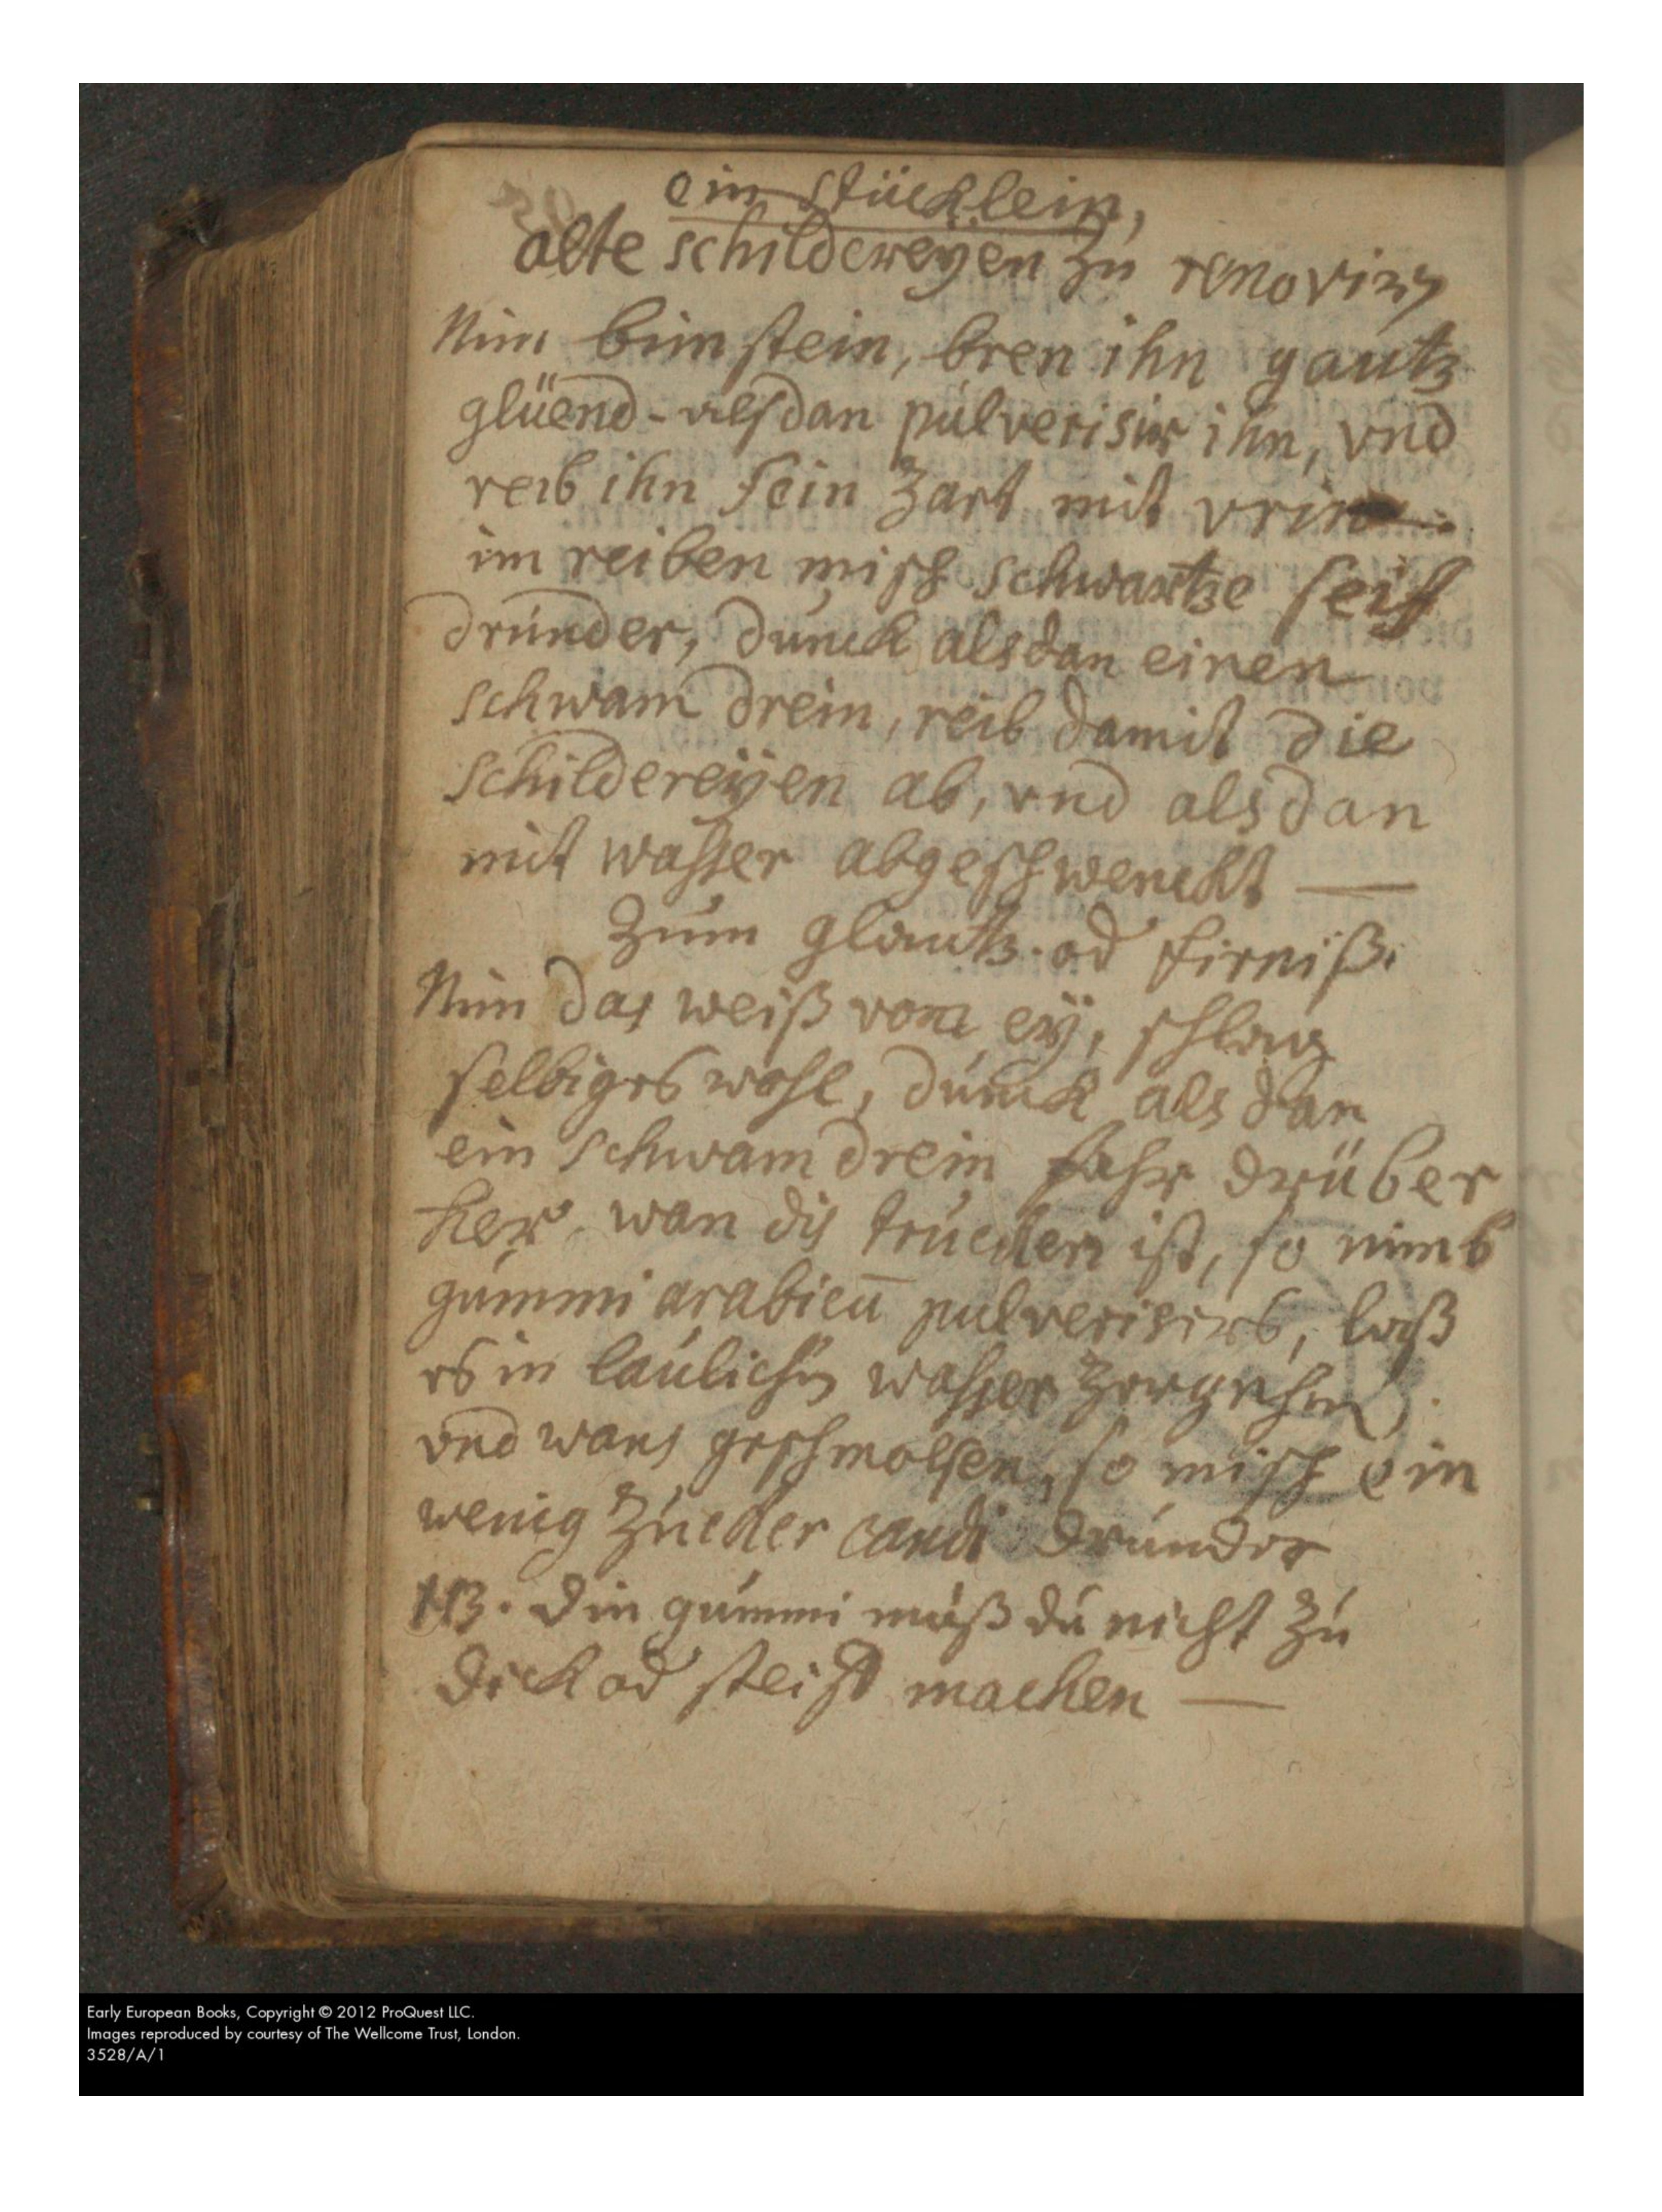 ein stücklein,
alte schildereÿen zu renoviren
Nim bimstein, bren ihn gantz
glüend - alsdan pulverisir ihn, vnd
reib ihn fein zart mit vrin
im reiben misch schwartze seiff
drunder, dunck alsdan einen
schwam drein, reib damit die
schildereÿen ab, vnd alsdan
mit wasser abgeschwenckt —
Zum glantz od firniß.
Nim das weiß vom eÿ, schlag
selbiges wohl, dunck alsdan
ein schwam drein fahr drüber
her. wan dis trucken ist, so nimb
gummi arabicū pulverisirs, laß
es in laulichen wasser zergehen,
vnd wans geschmolsen, so misch ein
wenig zucker candi drunder
NB. Den gummi muß du nicht zu
dick od steiff machen —
Early European Books, Copyright © 2012 ProQuest LLC.
Images reproduced by courtesy of The Wellcome Trust, London.
3528/A/1